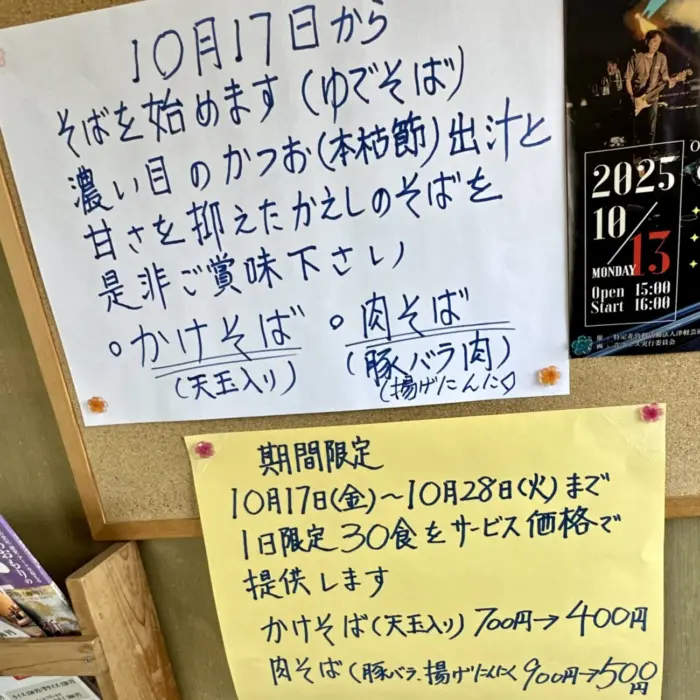 10月17日から
そばを始めます(ゆでそば)
濃い目のかつお(本枯節)出汁と
甘さを抑えたかえしのそばを
是非ご賞味下さい
○かけそば ○肉そば
(天玉入り) (豚バラ肉)
(揚げにんにく)
2025
10/13
MONDAY
Open 15:00
Start 16:00
期間限定
10月17日(金)~10月28日(火)まで
1日限定30食をサービス価格で
提供します
かけそば(天玉入り) 700円→400円
肉そば(豚バラ、揚げにんにく 900円→500円